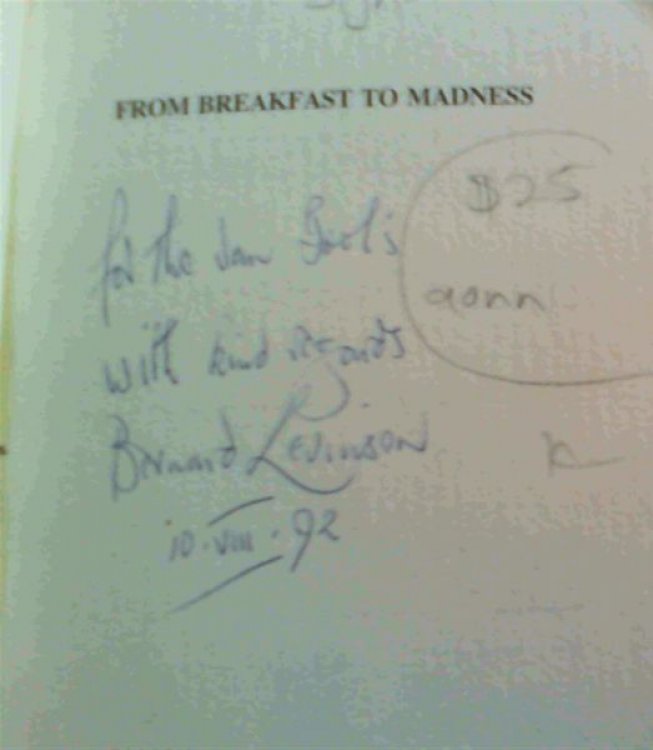 FROM BREAKFAST TO MADNESS
$25
for the Van
aonn
with kind regards
Bernard Levinson
10·VIII·92